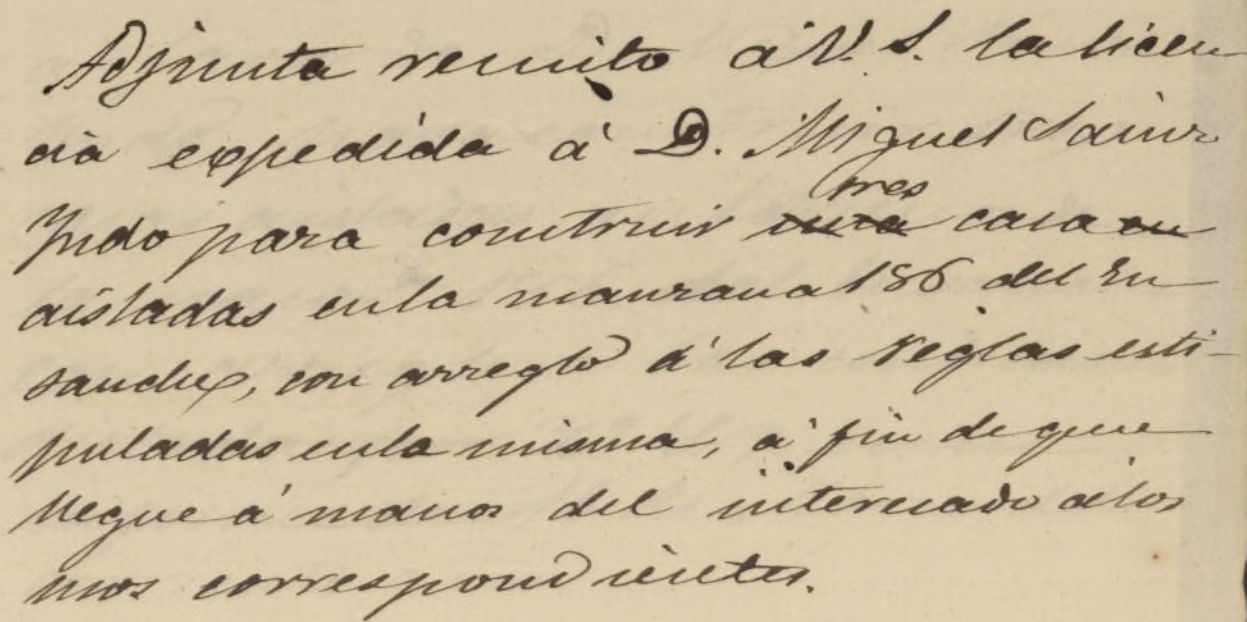 Adjunta remito á V. S. la licen
cia expedida á D. Miguel Sainz
Indo para construir tres casa
aisladas en la manzana 186 del En
sanche, con arreglo á las reglas esti-
puladas en la misma, á fin de que
llegue á manos del interesado á los
usos correspondientes.